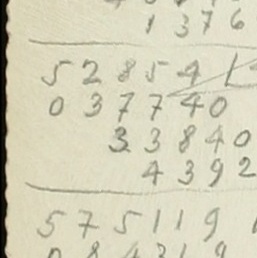 1 3 7 6
5 2 8 5 4 1
0 3 7 7 4 0
3 3 8 4 0
4 3 9 2
5 7 5 1 1 9